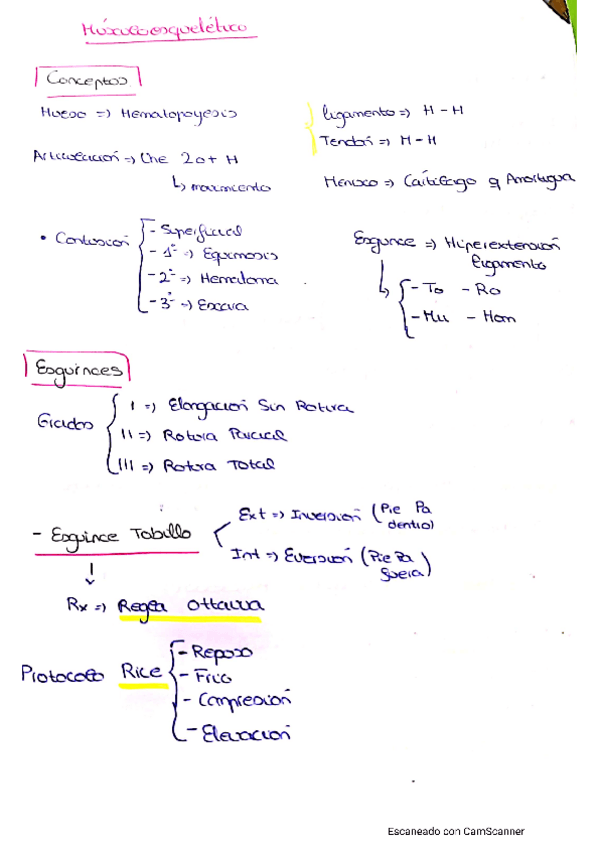 Músculo esquelético
Conceptos
Hueso => Hematopoyesis
Ligamento => H - H
Tendón => M - H
Articulación => Une 2 o + H
↳ movimiento
Menisco => Cartílago q Amortigua
• Contusión
- Superficial
- 1º => Equimosis
- 2º => Hematoma
- 3º => Escara
Esguince => Hiperextensión
ligamento
- To - Ro
- Mu - Hom
Esguinces
Grados
I => Elongación Sin Rotura
II => Rotura Parcial
III => Rotura Total
- Esguince Tobillo
Ext => Inversión (Pie Pa
dentro)
Int => Eversión (Pie Pa
fuera)
Rx => Regla Ottawa
Protocolo Rice
- Reposo
- Frio
- Compresión
- Elevación
Escaneado con CamScanner